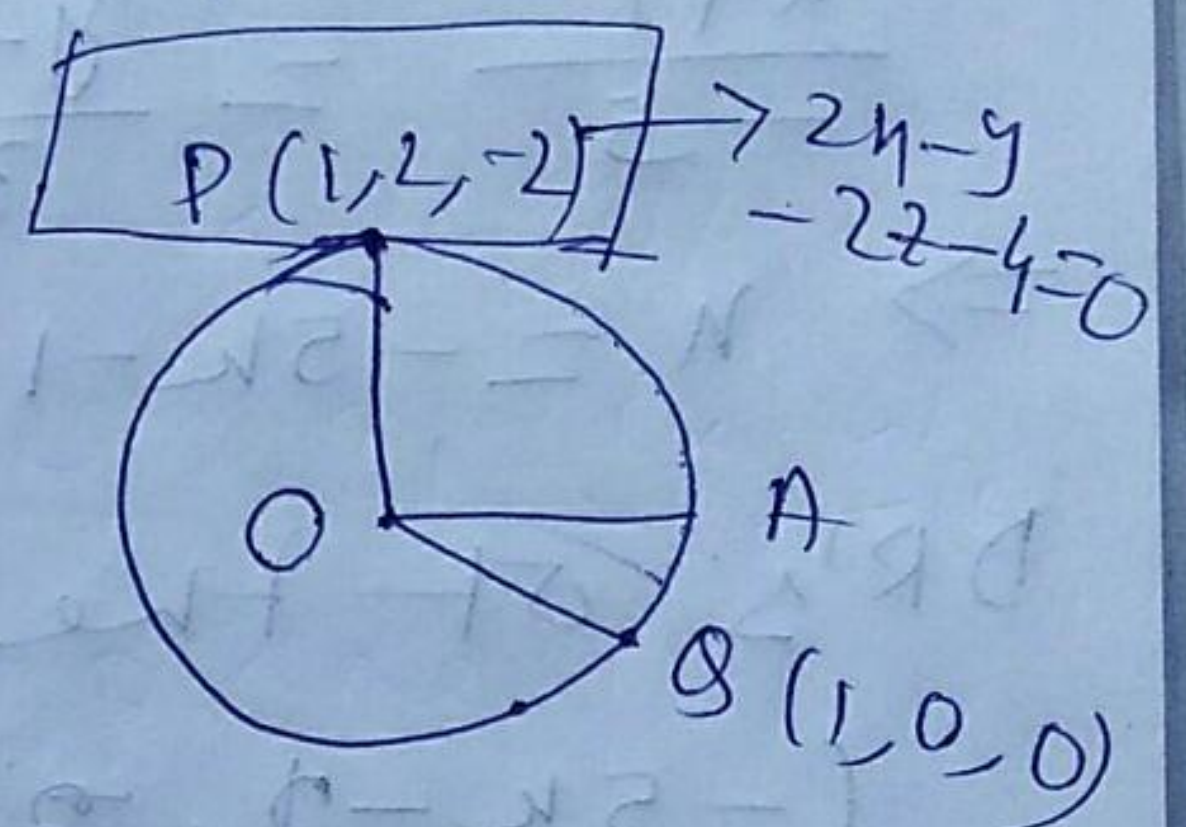 P (1, 2, -2) → 2x - y
- 2z - 4 = 0
O
A
Q (1, 0, 0)